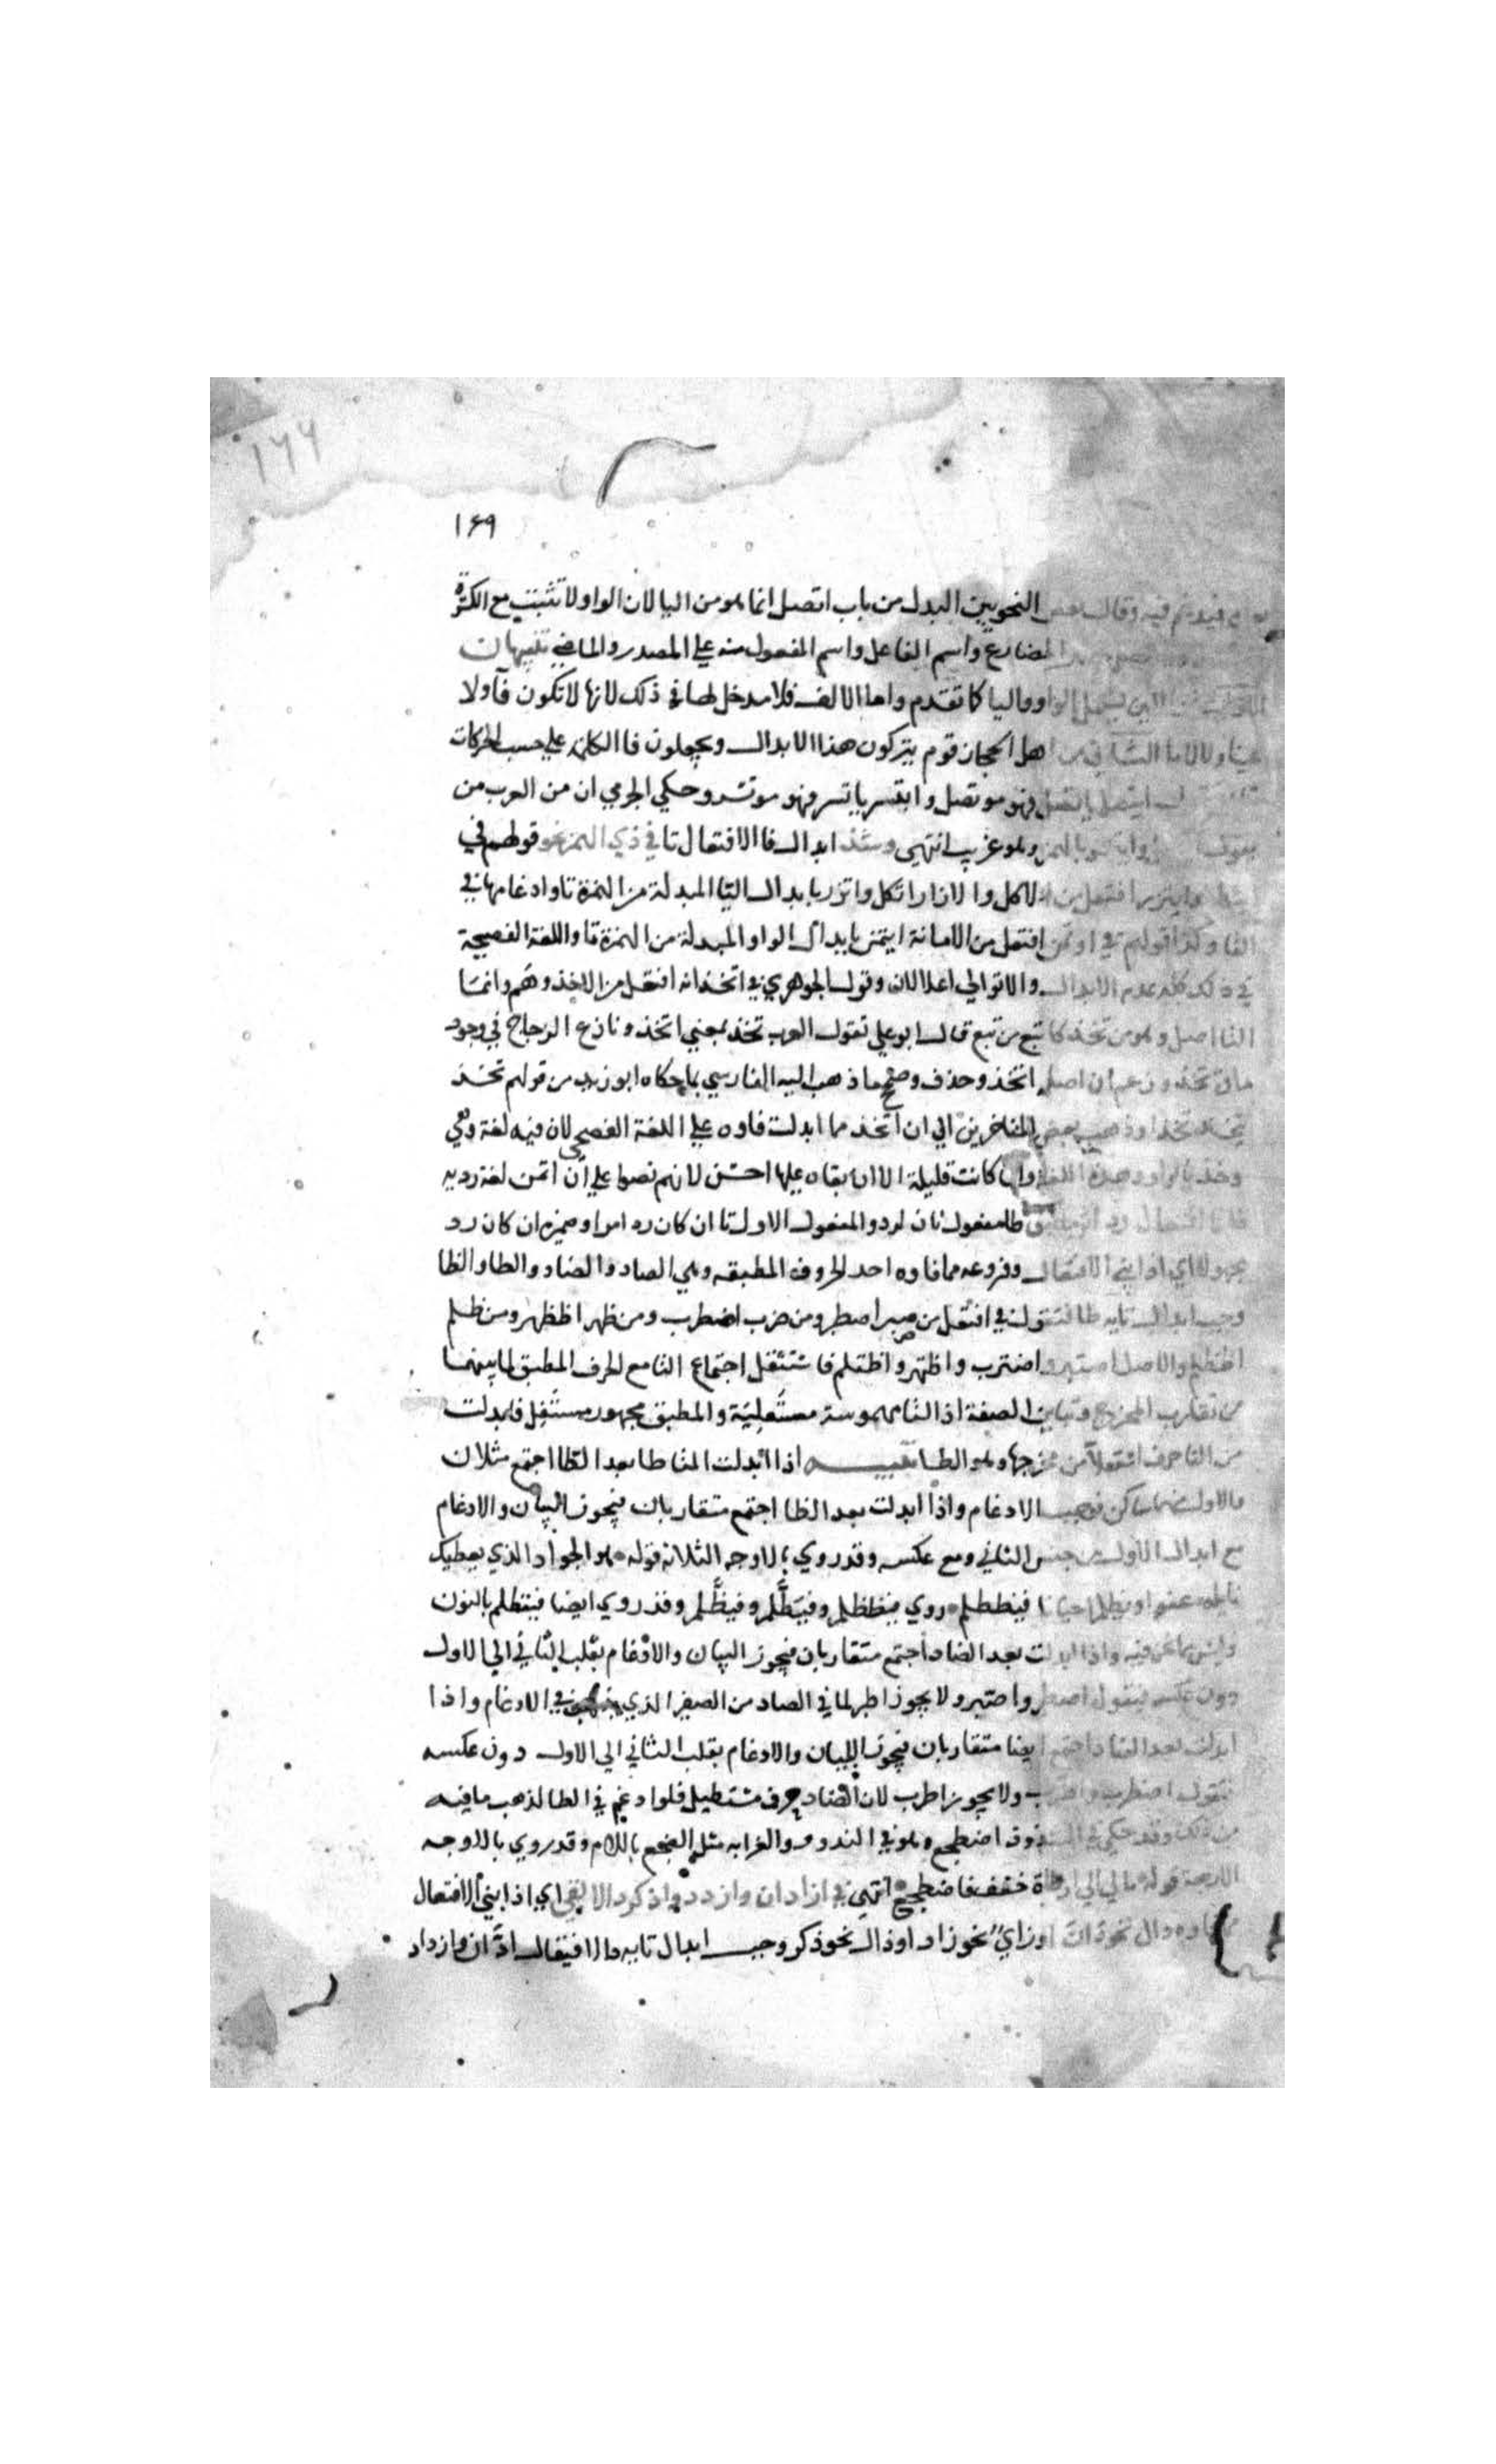 ١٦٩
١٦٩
فيدغم فيه وقال بعض النحويين البدل من باب اتصل انما هو من اليا لان الواو لا تثبت مع الكثرة
المضارع واسم الفاعل واسم المفعول منه علي المصدر والماضي تنبيهات
الاول اللين يشمل الواو واليا كما تقدم واما الالف فلا مدخل لها في ذلك لانها لا تكون فآ ولا
عينا ولا لاما الثاني من اهل الحجاز قوم يتركون هذا الابدال ويجعلون فا الكلمة علي حسب الحركات
ايتصل ياتصل فهو موتصل وايتسر ياتسر فهو موتسر وحكي الجرمي ان من العرب من
يقول وهو غريب انتهي وشذ ابدال فا الافتعال تا في ذي الهمز نحو قولهم في
ايتزر افتعل من الاكل والازار اتكل واتزر بابدال اليا المبدلة من الهمزة تا وادغامها في
التا وكذا قولهم في اوتمن افتعل من الامانة ايتمن بابدال الواو المبدلة من الهمزة تا واللغة الفصيحة
في ذلك كله عدم الابدال والا توالي اعلالان وقول الجوهري في اتخذ انه افتعل من الاخذ وهم وانما
التا اصل وهو من تخذ كاتبع من تبع قال ابو علي تقول العرب تخذ بمعني اتخذ ونازع الزجاج في وجود
مادة تخذ وزعم ان اصله اتخذ وحذف وصحح ما ذهب اليه الفارسي بما حكاه ابو زيد من قولهم تخذ
يتخذ تخذا وذهب بعض المتاخرين الي ان اتخذ مما ابدلت فاوه علي اللغة الفصحي لان فيه لغة وهي
وخذ بالواو وهذه اللغة وان كانت قليلة الا ان بقاه عليها احسن لانهم نصوا علي ان اتمن لغة رديه
طا مفعول ثان لرد والمفعول الاول تا ان كان رد امرا وضميره ان كان رد
مجهولا اي اذا بني الافتعال وفروعه مما فاوه احد الحروف المطبقه وهي الصاد والضاد والطا والظا
وجب ابدال تايه طا فتقول في افتعل من صبر اصطبر ومن ضرب اضطرب ومن ظهر اظطهر ومن ظلم
اظطلم والاصل اصتبر و اضترب واظتهر واظتلم فاستثقل اجتماع التا مع الحرف المطبق لما بينهما
من تقارب المخرج وتباين الصفة اذ التا مهموسة مستفلة والمطبق مجهور مستعل فابدلت
من التا حرف استعلا من مخرجها وهو الطا تنبيه اذا ابدلت التا طا بعد الطا اجتمع مثلان
والاول منهما ساكن فوجب الادغام واذا ابدلت بعد الظا اجتمع متقاربان فيجوز البيان والادغام
مع ابدال الاول من جنس الثاني ومع عكسه وقد روي بالاوجه الثلاثه قوله هو الجواد الذي يعطيك
نايله عفوا ويظلم احيانا فيظطلم روي فيظطلم وفيطّلم وفيظّلم وقد روي ايضا فينظلم بالنون
وليس مما نحن فيه واذا ابدلت بعد الصاد اجتمع متقاربان فيجوز البيان والادغام بقلب الثاني الي الاول
دون عكسه فيقول اصطبر واصبر ولا يجوز اطبر لما في الصاد من الصفير الذي يذهب في الادغام واذا
ابدلت بعد الضاد اجتمع ايضا متقاربان فيجوز البيان والادغام بقلب الثاني الي الاول دون عكسه
فتقول اضطرب واضرب ولا يجوز اطرب لان الضاد حرف مستطيل فلو ادغم في الطا لذهب ما فيه
من ذلك وقد حكي في الشذوذ اضطجع وهو في الندور والغرابه مثل الضجع باللام وقد روي بالاوجه
الاربعة قوله مال الي ارطاة حقف فاضطجع انتهي في ازدان وازدد واذكر دالا بقي اي اذا بني الافتعال
دال نحو دان او زاي نحو زاد او ذال نحو ذكر وجب ابدال تايه دالا فيقال ادّان وازداد